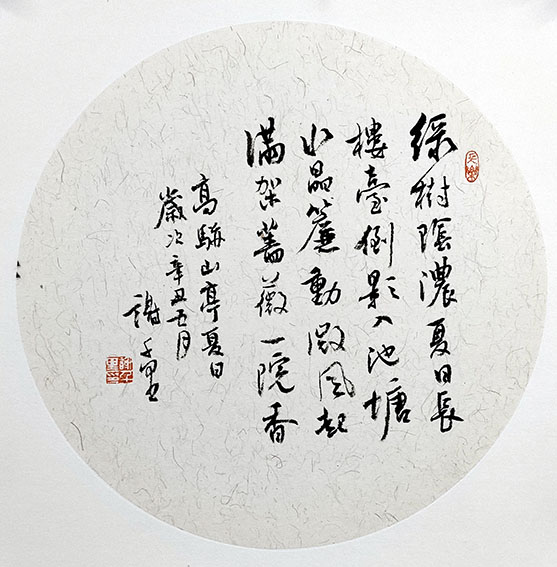 綠樹陰濃夏日長
樓臺倒影入池塘
水晶簾動微風起
滿架薔薇一院香
高駢山亭夏日
歲次辛丑五月
謝